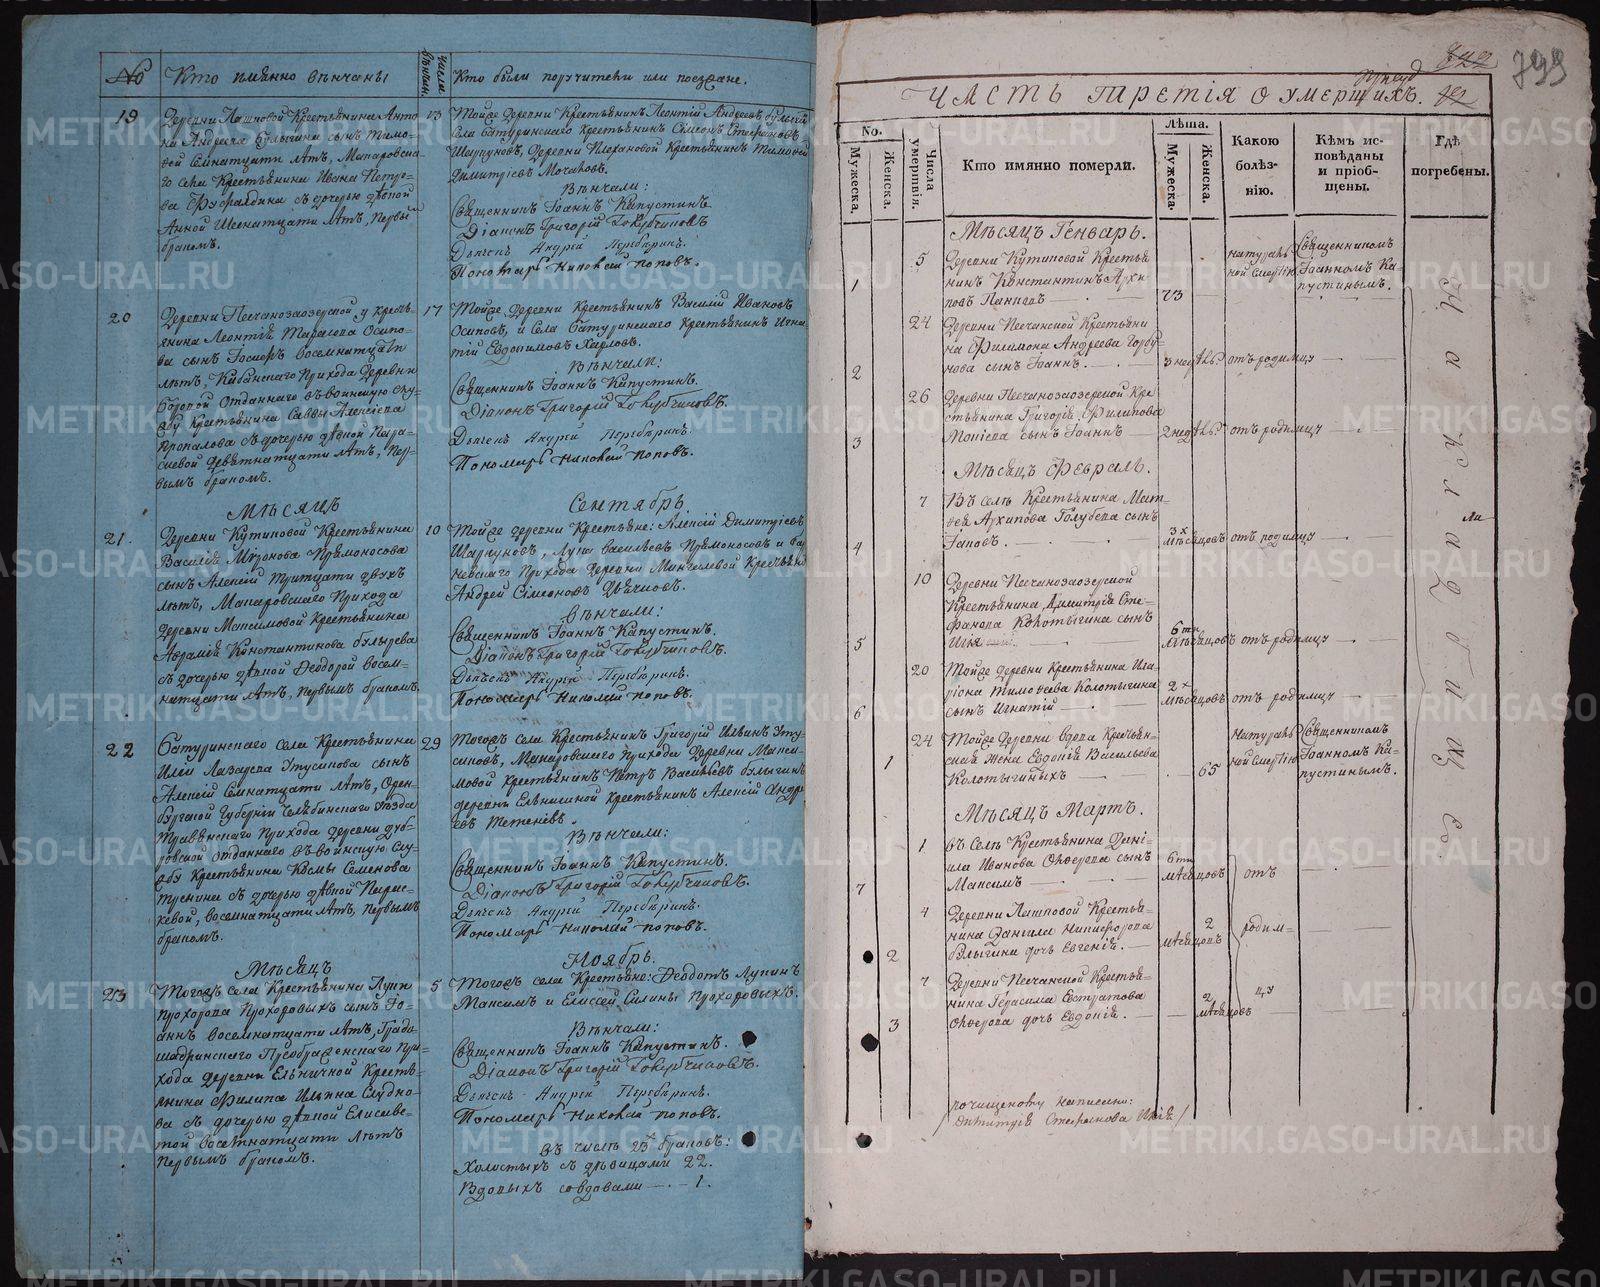 № Кто имянно венчаны Числа венчан. Кто были поручители или поезжане.
19 Деревни Лашновой Крестьянина Анто
на Андреева Булыгина сынъ Тимо-
фей Семнатцати летъ, Макаровска-
го села Крестьянина Ивана Петро-
ва дочерью девкой
Анной Шеснатцати летъ, Первый
бракомъ.
13 Тойже деревни Крестьянинъ Леонтій Андреевъ Булыгинъ
Села Батуринскаго Крестьянинъ Симеонъ Стефановъ
Шарпуновъ, Деревни Крестьянинъ Тимофей
Димитріевъ
Венчали:
Священникъ Іоаннъ Капустинъ
Діаконъ Григорій Голубчиковъ
Дьячекъ Андрей
Пономарь Николай Поповъ.
20 Деревни Песчанозаозерской, у кресть-
янина Леонтія Тарасова Осипо-
ва сынъ Іосифъ восемнатцати
летъ, Кабанскаго Прихода Деревни
отданнаго въ воинскую слу-
жбу Крестьянина Саввы Алексеева
съ дочерью девкой Пара-
скевой девятнатцати летъ, Пер-
вымъ бракомъ.
17 Тойже деревни Крестьянинъ Василій Ивановъ
Осиповъ, и Села Батуринскаго Крестьянинъ Игна-
тій Евдокимовъ Харловъ.
Венчали:
Священникъ Іоаннъ Капустинъ.
Діаконъ Григорій Голубчиковъ.
Дьячекъ Андрей
Пономарь Николай Поповъ.
Месяцъ Сентябрь
21. Деревни Кутиковой Крестьянина
Василія Миронова Прямоносова
сынъ Алексій Тритцати двухъ
летъ, Макаровскаго Прихода
деревни Максимовой Крестьянина
Аврамія Константинова Булыгева
съ дочерью девкой Феодорой восем-
натцати летъ, Первымъ бракомъ.
10 Тойже деревни Крестьяне: Алексій Димитріевъ
Шарпуновъ, Лука Васильевъ Прямоносовъ и
Прихода Деревни Крестьянинъ
Андрей Симеоновъ
Венчали:
Священникъ Іоаннъ Капустинъ.
Діаконъ Григорій Голубчиковъ.
Дьячекъ Андрей
Пономарь Николай Поповъ.
22 Батуринскаго села Крестьянина
Ильи Лазарева Утусикова сынъ
Алексій Семнатцати летъ, Орен-
бургской Губерніи Челябинскаго уезда
Прихода деревни Дуб-
ровской отданнаго въ воинскую слу-
жбу Крестьянина Космы Семенова
съ дочерью девкой Парас-
кевой, восемнатцати летъ, Первымъ
бракомъ.
29 Тогожъ села Крестьянинъ Григорій Ильинъ Уту-
сиковъ, Макаровскаго прихода Деревни Макси-
мовой Крестьянинъ Петръ Васильевъ Булыгинъ
деревни Ельничной Крестьянинъ Алексій Андре
евъ
Венчали:
Священникъ Іоаннъ Капустинъ.
Діаконъ Григорій Голубчиковъ.
Дьячекъ Андрей
Пономарь Николай Поповъ.
Месяцъ Ноябрь.
23 Тогожъ села Крестьянина Луки
Прохорова Прохоровыхъ сынъ Іо-
аннъ восемнатцати летъ, Града
Шадринскаго Преображенскаго При-
хода деревни Ельничной Кресть-
янина Филипа Ильина
съ дочерью девкой Елисаве-
той восемнатцати летъ
Первымъ бракомъ.
5 Тогожъ села Крестьяне: Феодотъ Лукинъ
Максимъ и Елисей Силины Прохоровыхъ.
Венчали:
Священникъ Іоаннъ Капустинъ.
Діаконъ Григорій Голубчиковъ.
Дьячекъ Андрей
Пономарь Николай Поповъ.
Въ числе 23х браковъ:
Холостыхъ съ девицами 22.
Вдовыхъ со вдовами — 1.
799
ЧАСТЬ ТРЕТІЯ О УМЕРШИХЪ.
No. Мужеска. Женска. Числа умертвія. Кто имянно померли. Лѣта. Мужеска. Женска. Какою болѣз-нію. Кѣмъ ис-повѣданы и пріоб-щены. Гдѣ погребены.
Месяцъ Генварь.
1 5 Деревни Кутиковой Крестья
нинъ Константинъ Архи-
повъ 73 натураль ной смертію Священникомъ Іоанномъ Ка-пустинымъ.
2 24 Деревни Песчанской Крестьяни
на Филимона Андреева Горбу-
нова сынъ Іоаннъ. 3 недѣль отъ родимцу
3 26 Деревни Песчанозаозерской Кре
стьянина Григорія Филипова
сынъ Іоаннъ 2 недѣль отъ родимцу
Месяцъ Февраль.
4 7 Въ селѣ Крестьянина Мат-
фея Архипова Голубева сынъ
Іаковъ. 3х мѣсяцовъ отъ родимцу
5 10 Деревни Песчанозаозерской
Крестьянина Димитрія Сте-
фанова Колотыгина сынъ
Илья 6ти мѣсяцовъ отъ родимцу
6 20 Тойже деревни Крестьянина Ила-
ріона Тимофеева Колотыгина
сынъ Игнатій 2х мѣсяцовъ отъ родимцу
1 24 Тойже деревни вдова Крестьян-
ская жена Евдокія Васильева
Колотыгиныхъ 65 натураль ной смертію Священникомъ Іоанномъ Ка-пустинымъ.
Месяцъ Мартъ.
7 1 Въ селѣ Крестьянина Дани-
ила Иванова сынъ
Максимъ 6ти мѣсяцовъ отъ
2 4 Деревни Лашковой Крестья-
нина Никифорова
Булыгина дочь Евгенія. 2 мѣсяцовъ родим-
3 7 Деревни Песчанской Крестья-
нина Герасима Евстратова
дочь Евдокія. 2 мѣсяцовъ цу
На кладбищѣ.
почищеному написано:
Димитрія Стефанова Илія
METRIKI.GASO-URAL.RU